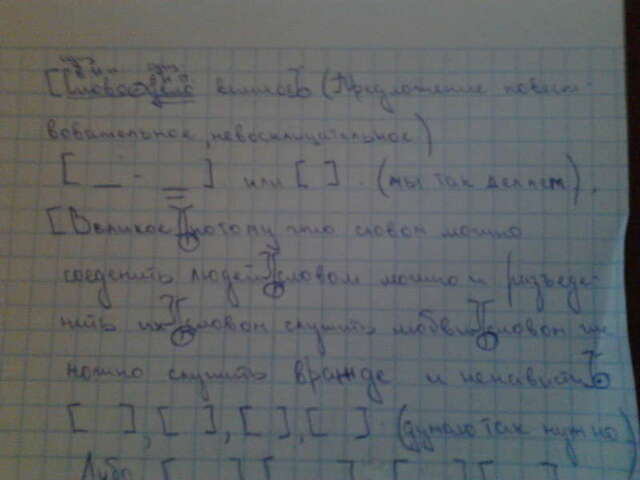 [Слово - дело великое] (Предложение повест-
вовательное, невосклицательное)
[ _ - = ] или [ ]. (мы так делаем).
[Великое потому что словом можно
соеденить людей словом можно и разъеде-
нить их словом служить любви словом
можно служить вражде и ненависти
[ ], [ ], [ ], [ ]. (думаю так нужно)
Либо [ ] [ ] [ ] [ ]